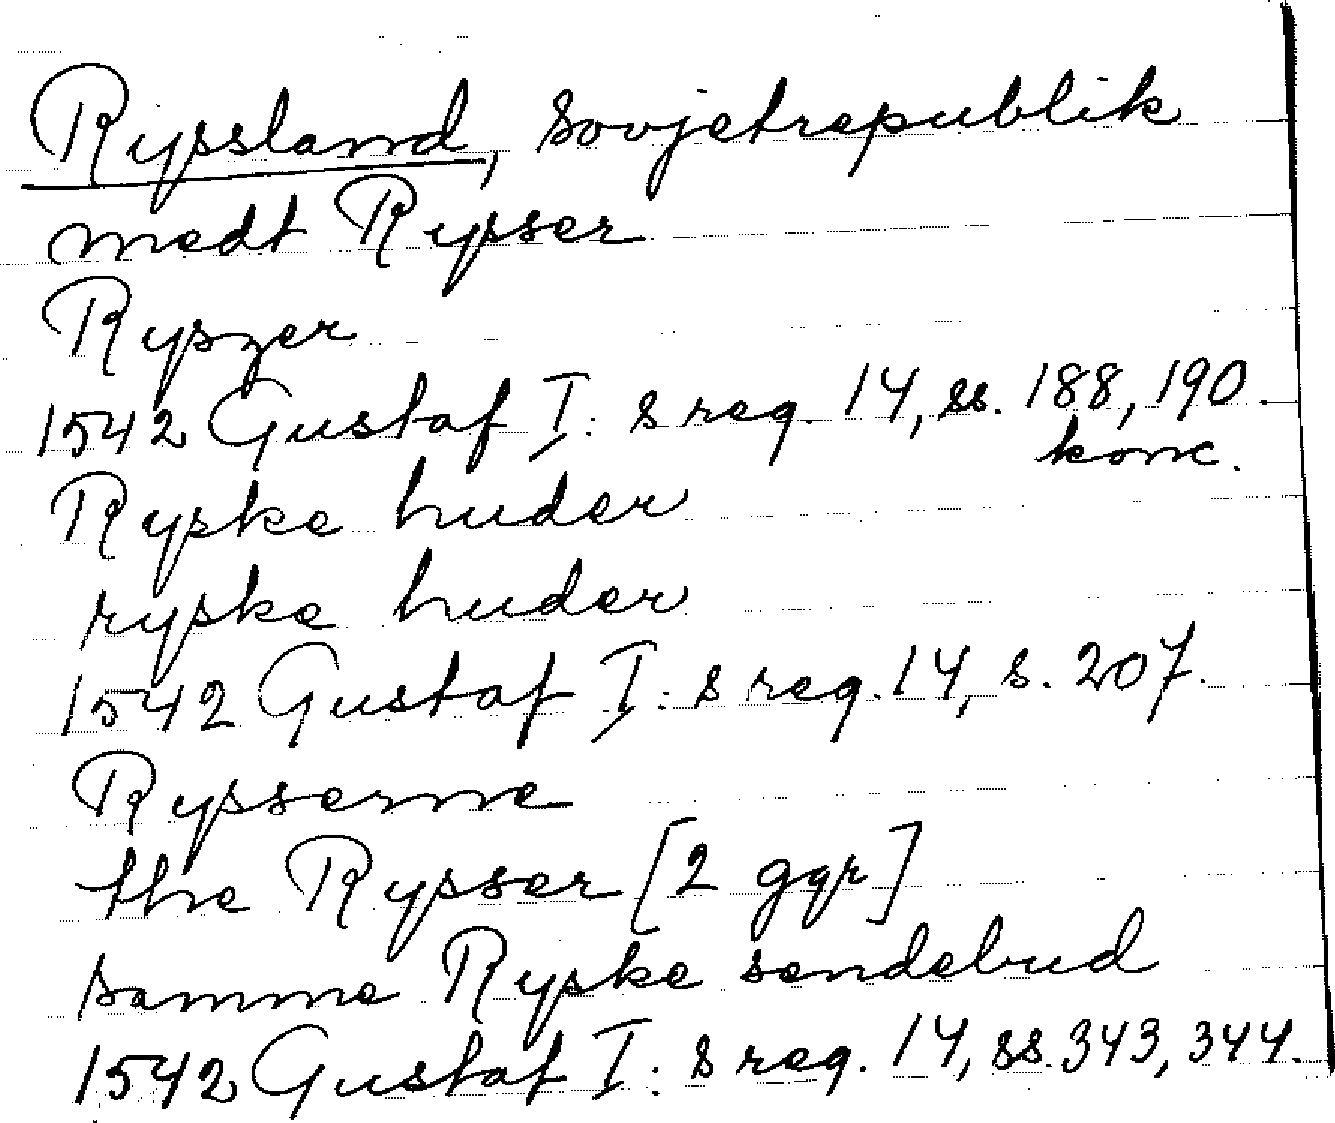 Ryssland, Sovjetrepublik
medt Rysser
Ryszer
1542 Gustaf I:s reg. 14, ss. 188, 190.
konc.
Ryske huder
ryske huder
1542 Gustaf I:s reg. 14, s. 207.
Rysserne
the Rysser [2 ggr]
samme Ryske sendebud
1542 Gustaf I:s reg. 14, ss. 343, 344.